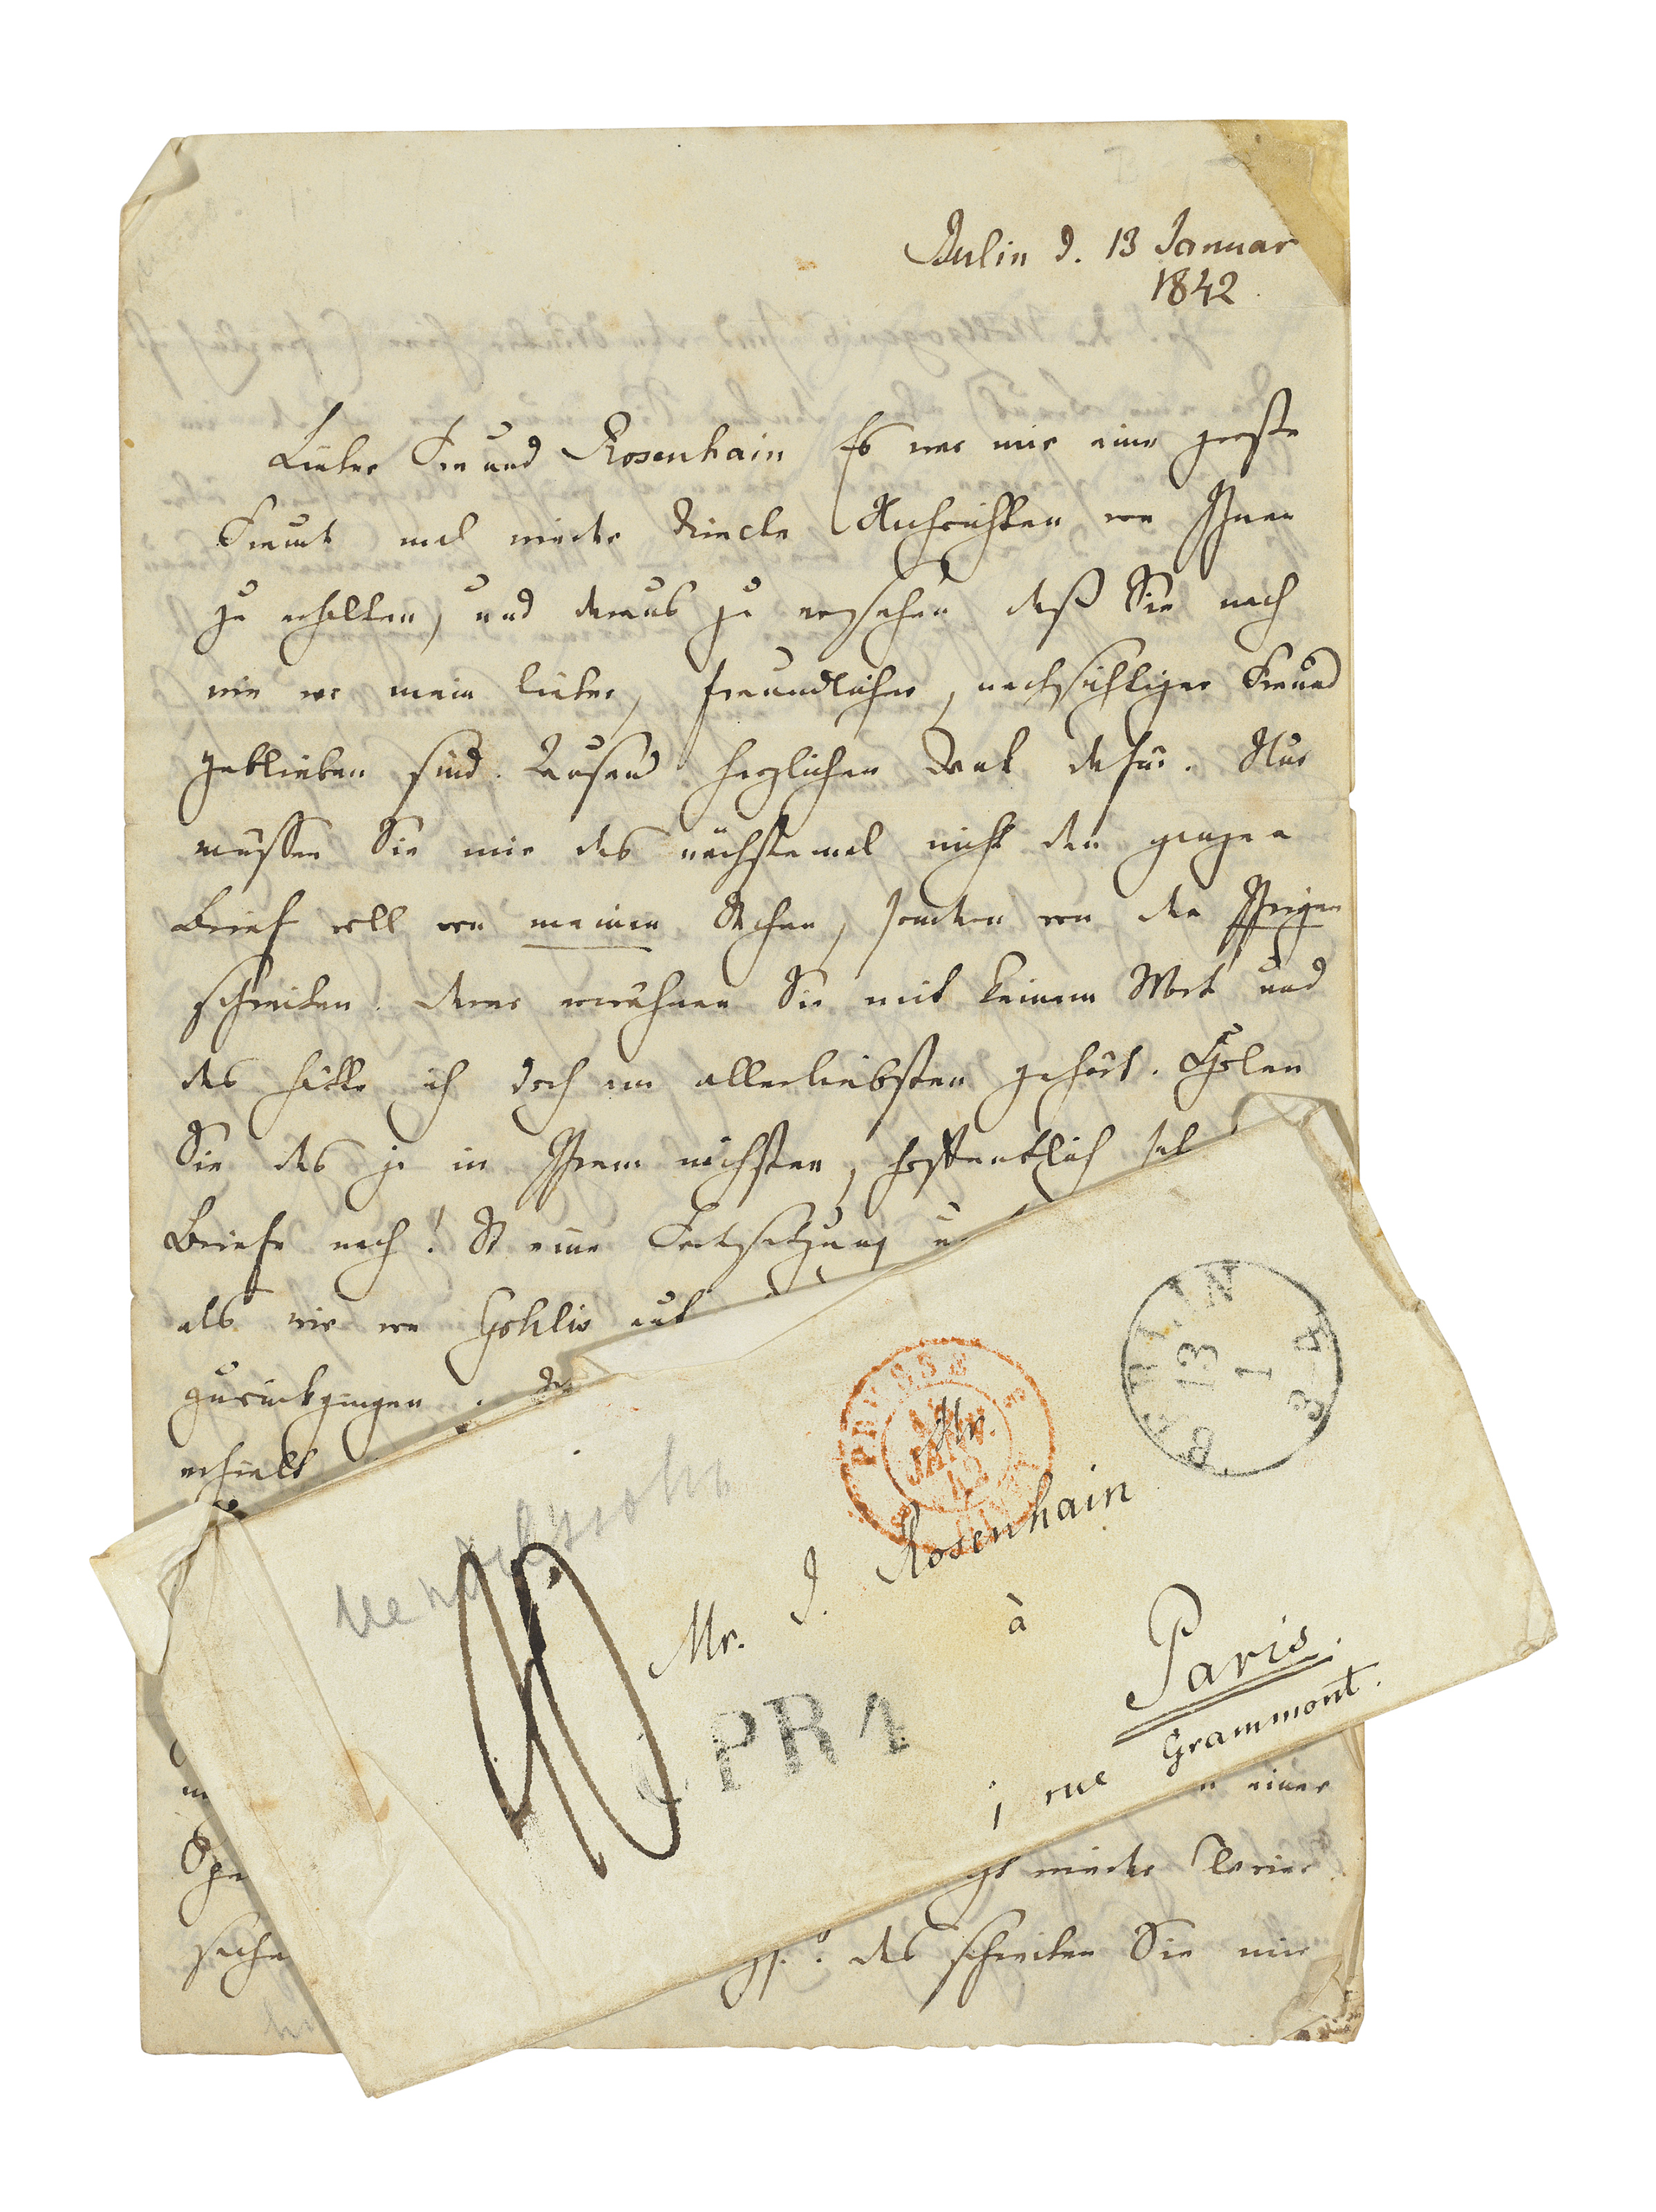 Berlin d. 13 Januar
1842.
Lieber Freund Rosenhain Es war mir eine große
Freude mal wieder directe Nachrichten von Ihnen
zu erhalten, und daraus zu ersehen daß Sie nach
wie vor mein lieber, freundlicher, nachsichtiger Freund
geblieben sind. Tausend herzlichen Dank dafür. Nur
müssen Sie mir das nächstemal nicht den ganzen
Brief voll von meinen Sachen, sondern von den Ihrigen
schreiben. Deren erwähnen Sie mit keinem Wort und
das hätte ich doch am allerliebsten gehört. Holen
Sie das ja in Ihrem nächsten, hoffentlich
Briefe nach!
eine Fortsetzung
als wir von Gohlis
zurückgingen.
erhielt
einer
wieder Clavier
sache
das schreiben Sie mir
Mendelssohn
PRUSSE
JANV.
42
BERLIN
13
1
3-4
Mr.
Mr. J. Rosenhain
à
Paris.
rue Grammont.
PR 1